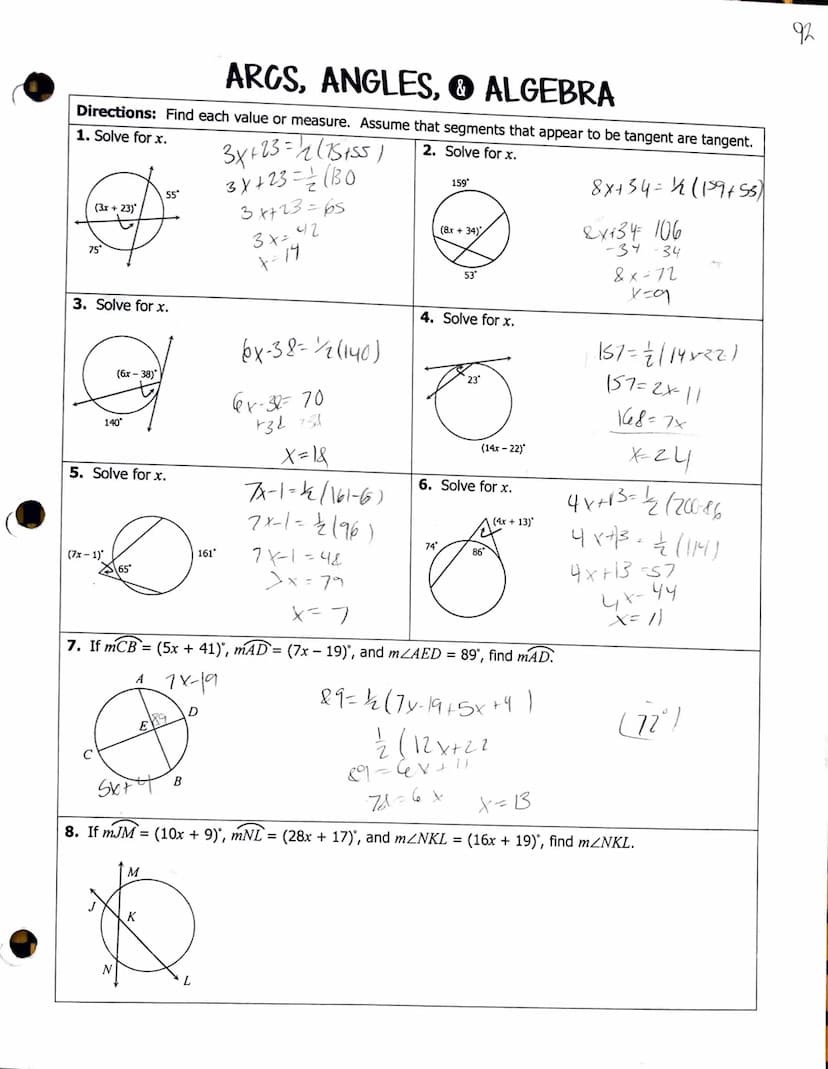 92
ARCS, ANGLES, & ALGEBRA
Directions: Find each value or measure. Assume that segments that appear to be tangent are tangent.
1. Solve for x.
(3x + 23)°
55°
75°
3x+23=½(75+55)
3x+23=½(130
3x+23=65
3x=42
x=14
2. Solve for x.
159°
(8x + 34)°
53°
8x+34=½(159+53)
8x+34=106
-34 -34
8x=72
x=9
3. Solve for x.
(6x – 38)°
140°
6x-38=½(140)
6x-38=70
+38 +38
x=18
4. Solve for x.
23°
(14x – 22)°
157=½(14x-22)
157=2x-11
168=7x
x=24
5. Solve for x.
(7x – 1)°
65°
161°
7x-1=½(161-6)
7x-1=½(96)
7x-1=48
7x=79
x=7
6. Solve for x.
(4x + 13)°
74°
86°
4x+13=½(200-86
4x+13=½(114)
4x+13=57
4x=44
x=11
7. If mCB = (5x + 41)°, mAD = (7x – 19)°, and m∠AED = 89°, find mAD.
A
7x-19
D
E
89
C
B
5x+4
89=½(7x-19+5x+41)
½(12x+22
89=6x+11
78=6x
x=13
(72°)
8. If mJM = (10x + 9)°, mNL = (28x + 17)°, and m∠NKL = (16x + 19)°, find m∠NKL.
M
J
K
N
L